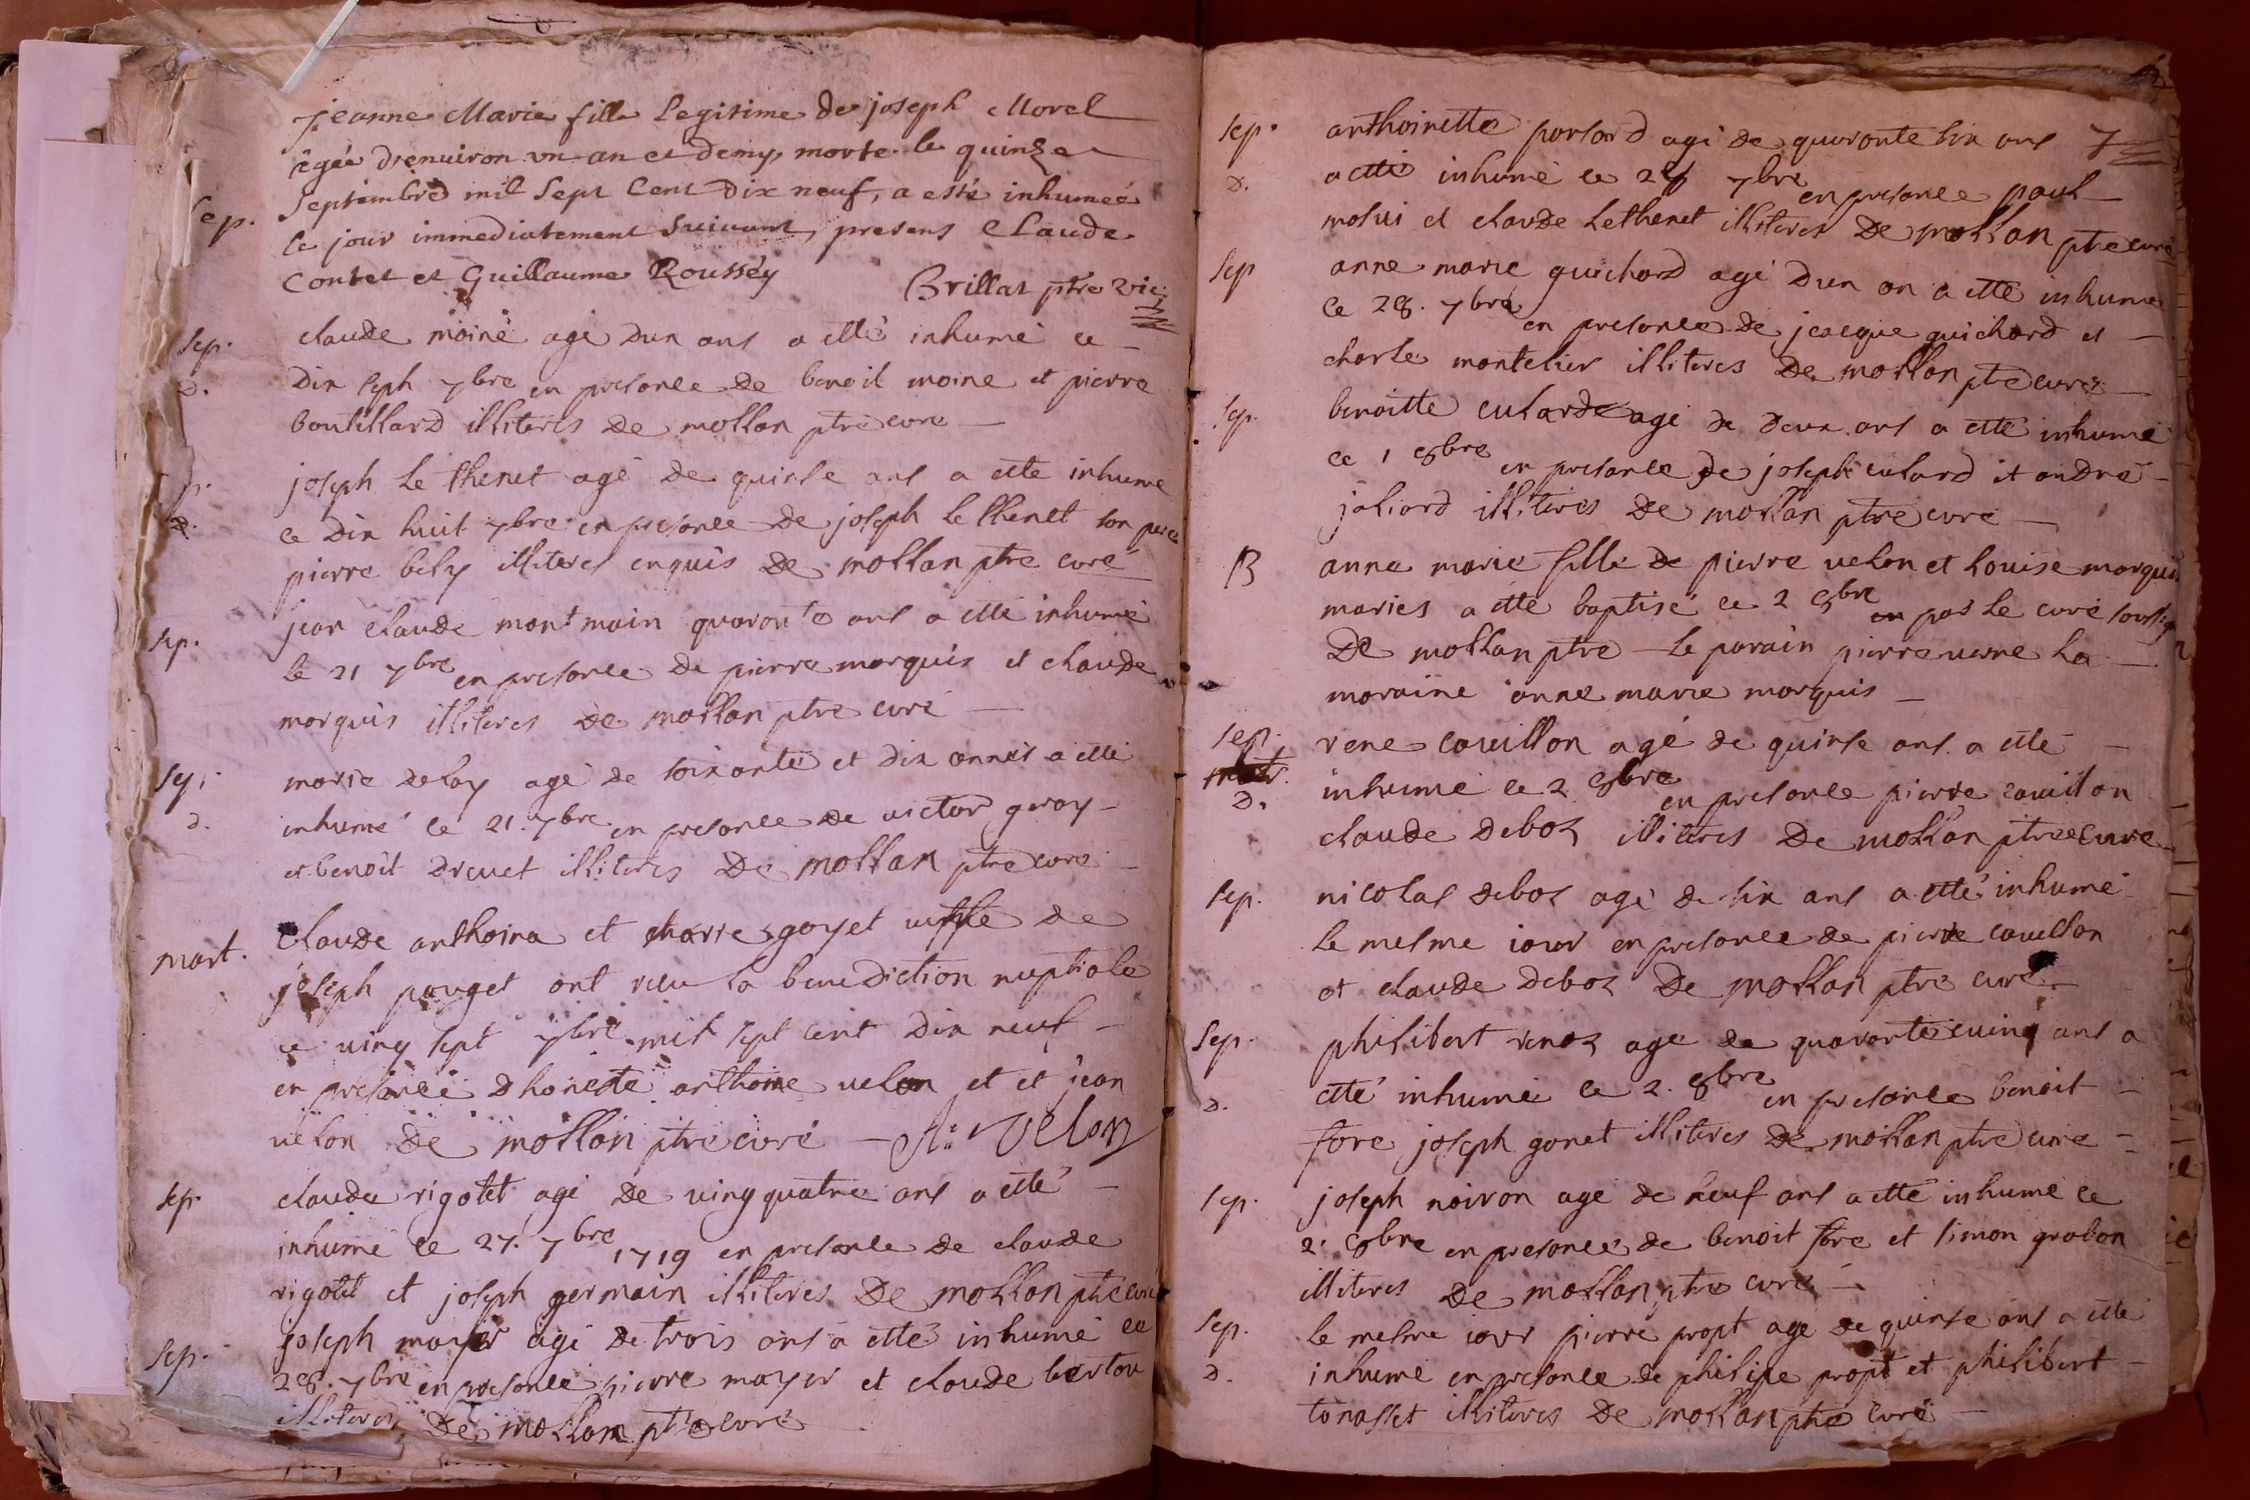 jeanne Marie fille Legitime de joseph Morel
agée d'enuiron vn an et demy, morte le quinze
Sep. Septembre mil Sept Cent Dix neuf, a esté inhumeé
le jour immediatement Suiuant, presens Claude
Contet et Guillaume Rousséy Brillat ptre vic:
Sep. claude moine agé dun ans a etté inhumé ce
D. Dix seph 7bre en presance de benoit moine et pierre
boutillard illiteres De mollan ptre curé
joseph Le thenet agé de quinse ans a etté inhumé
D. ce Dix huit 7bre en presance de joseph le thenet son pere
pierre bely illiteres enquis De mollan ptre curé
Sep. jean claude montmain quaronte ans a etté inhumé
le 21 7bre en presance de pierre marquis et claude
marquis illiteres De mollan ptre curé
Sep. marie delay agé de soixante et dix années a etté
D. inhumé ce 21. 7bre en presance de victor geray
et benoit Dreuet illiteres De mollan ptre curé
mart. Claude anthoina et goyet de
joseph pouget ont receu la benediction nuptiale
ce uing sept 7bre mil sept cent Dix neuf
en presance Dhoneste anthoine uelon et et jean
uelon De mollan ptre curé A: Velon
Sep claude rigotet agé De uing quatre ans a etté
inhumé ce 27. 7bre 1719 en presance de claude
rigotet et joseph germain illiteres De mollan ptre curé
Sep. joseph mayer agé De trois ans a etté inhumé ce
28. 7bre en presance pierre mayer et claude bertou
illiteres De mollan ptre curé
Sep. anthoinette agé De quaronte six ans 7
D. a etté inhumé ce 7bre en presance paul
molui et claude Lethenet illiteres De mollan ptre curé
Sep anne marie guichard agé Dun an a etté inhumé
ce 28. 7bre en presance de jacque guichard et
charle montelier illiteres De mollan ptre curé
Sep. benoitte cularde agé de deux ans a etté inhumé
ce 1 8bre en presance de joseph culard et andre
joliard illiteres De mollan ptre curé
B anne marie fille de pierre uelon et Louise marquis
mariés a etté baptisé ce 2 8bre en par le curé
De mollan ptre Le parain pierre uerne La
maraine anne marie marquis
Sep. rene couillon agé de quinse ans a etté
D. inhumé ce 2 8bre en presance pierre couillon
claude debos illiteres De mollan ptre curé
Sep. nicolas debos agé de six ans a etté inhumé
le mesme iour en presance de pierre couillon
et claude debos De mollan ptre curé
Sep. philibert agé de quaronte cuinq ans a
D. etté inhumé ce 2. 8bre en presance benoit
fore joseph gonet illiteres De mollan ptre curé
Sep. joseph noiron agé de neuf ans a etté inhumé ce
2. 8bre en presance de benoit fore et simon grobon
illiteres De mollan ptre curé
Sep. le mesme iour pierre propt agé de quinse ans a etté
D. inhumé en presance de philipe propt et philibert
tonasset illiteres De mollan ptre curé